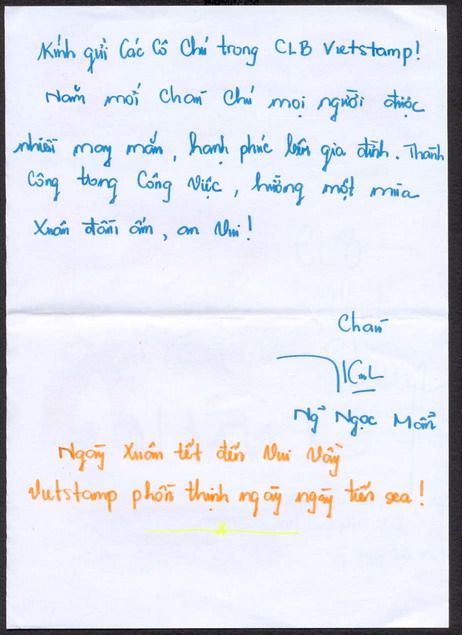 Kính gửi Các Cô Chú trong CLB Vietstamp!
Năm mới Cháu Chú mọi người được
nhiều may mắn, hạnh phúc bên gia đình. Thành
Công trong Công việc, hưởng một mùa
Xuân đầm ấm, an vui!
Cháu
Ng̉ Ngọc Mẩn
Ngày Xuân tết đến vui vầy
Vietstamp phồn thịnh ngày ngày tiến sea!